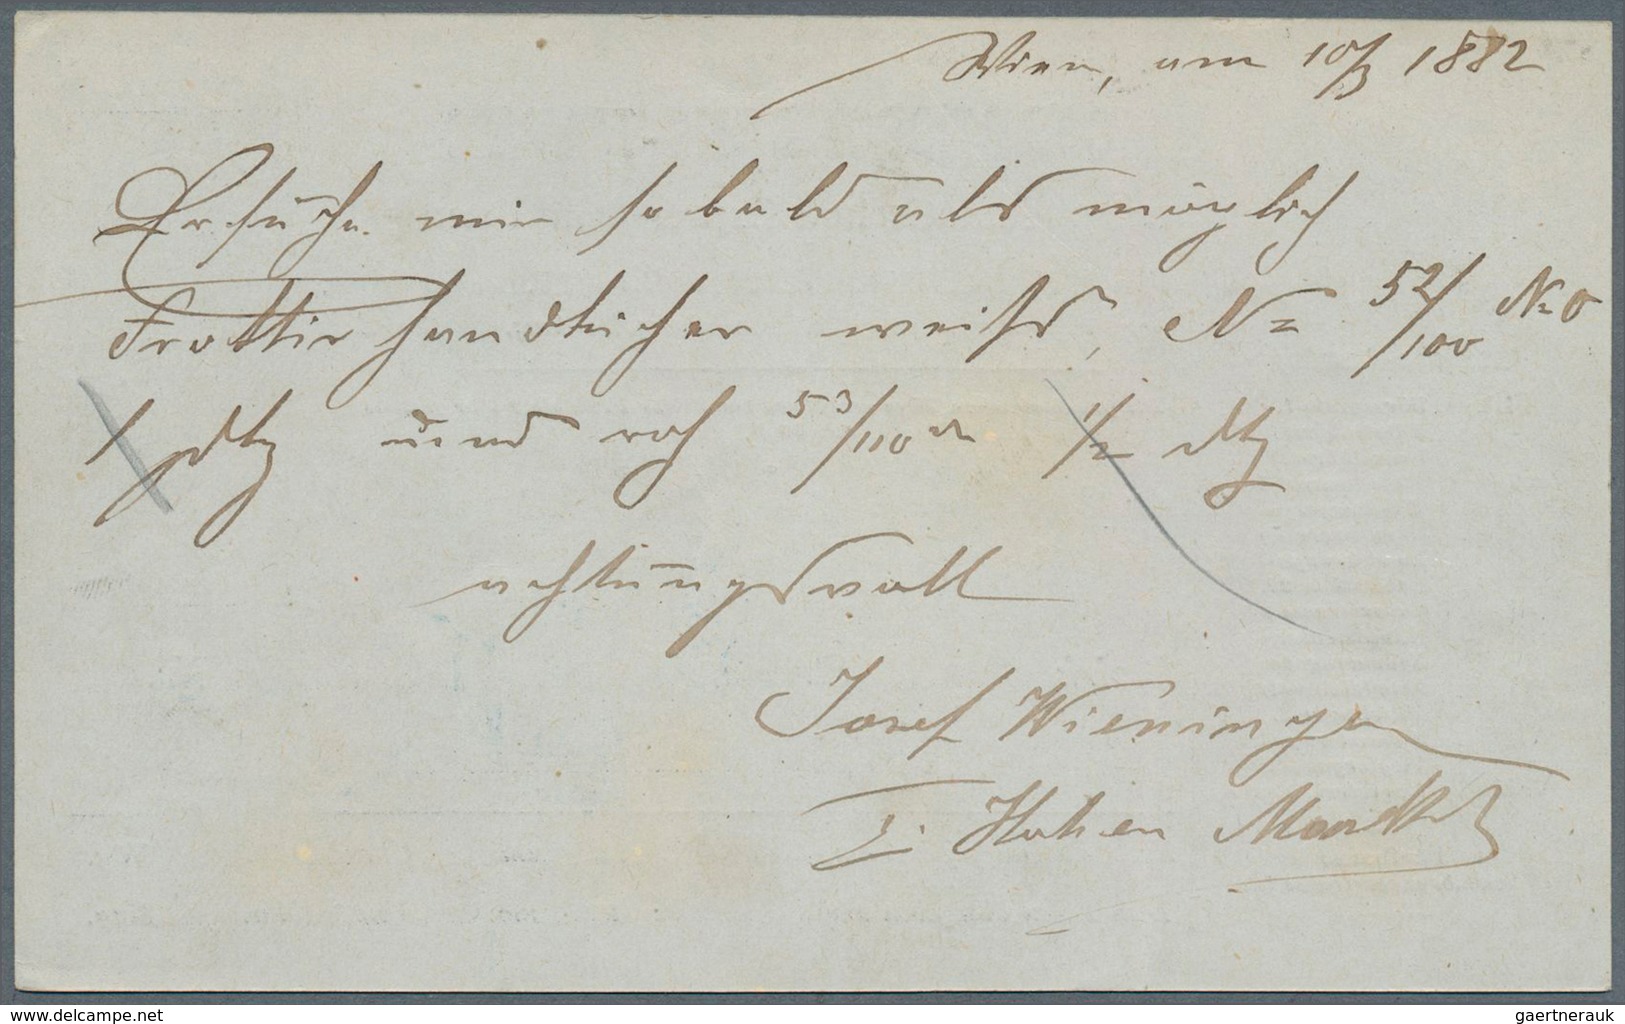 Wien, am 10/3 1882
Ersuche mir so bald als möglich
Frottirhandtücher weiss, No 52/100 No 0
1 dtz und roh 53/110 1/2 dtz
achtungsvoll
Josef Wieninger
I. Hohen Markt
www.delcampe.net
gaertnerauk